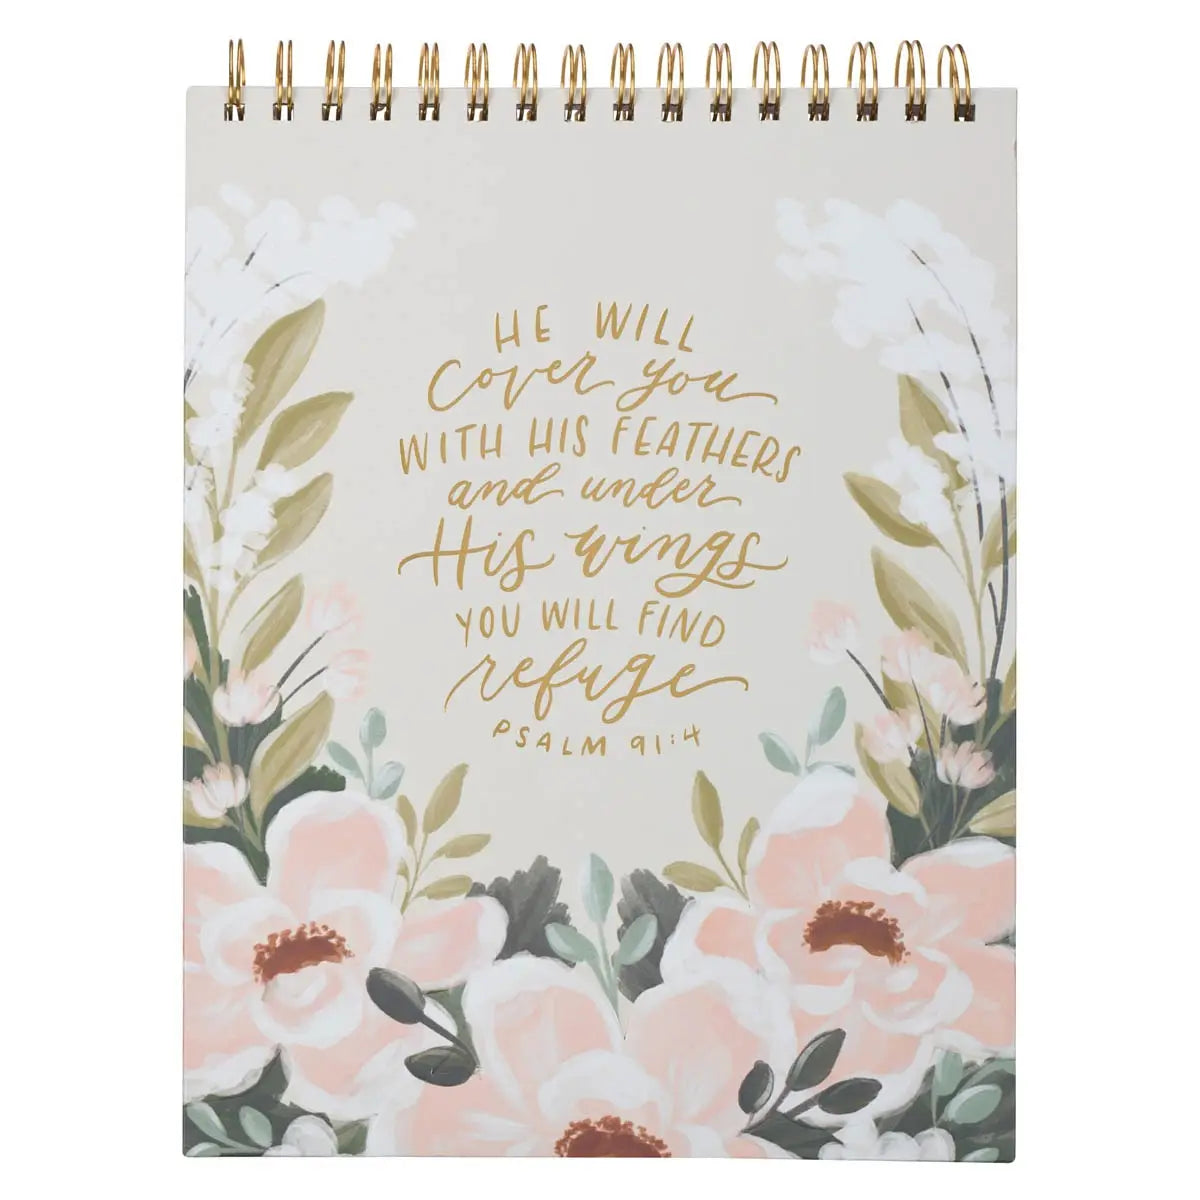 HE WILL
Cover you
WITH HIS FEATHERS
and under
His wings
YOU WILL FIND
refuge
PSALM 91:4